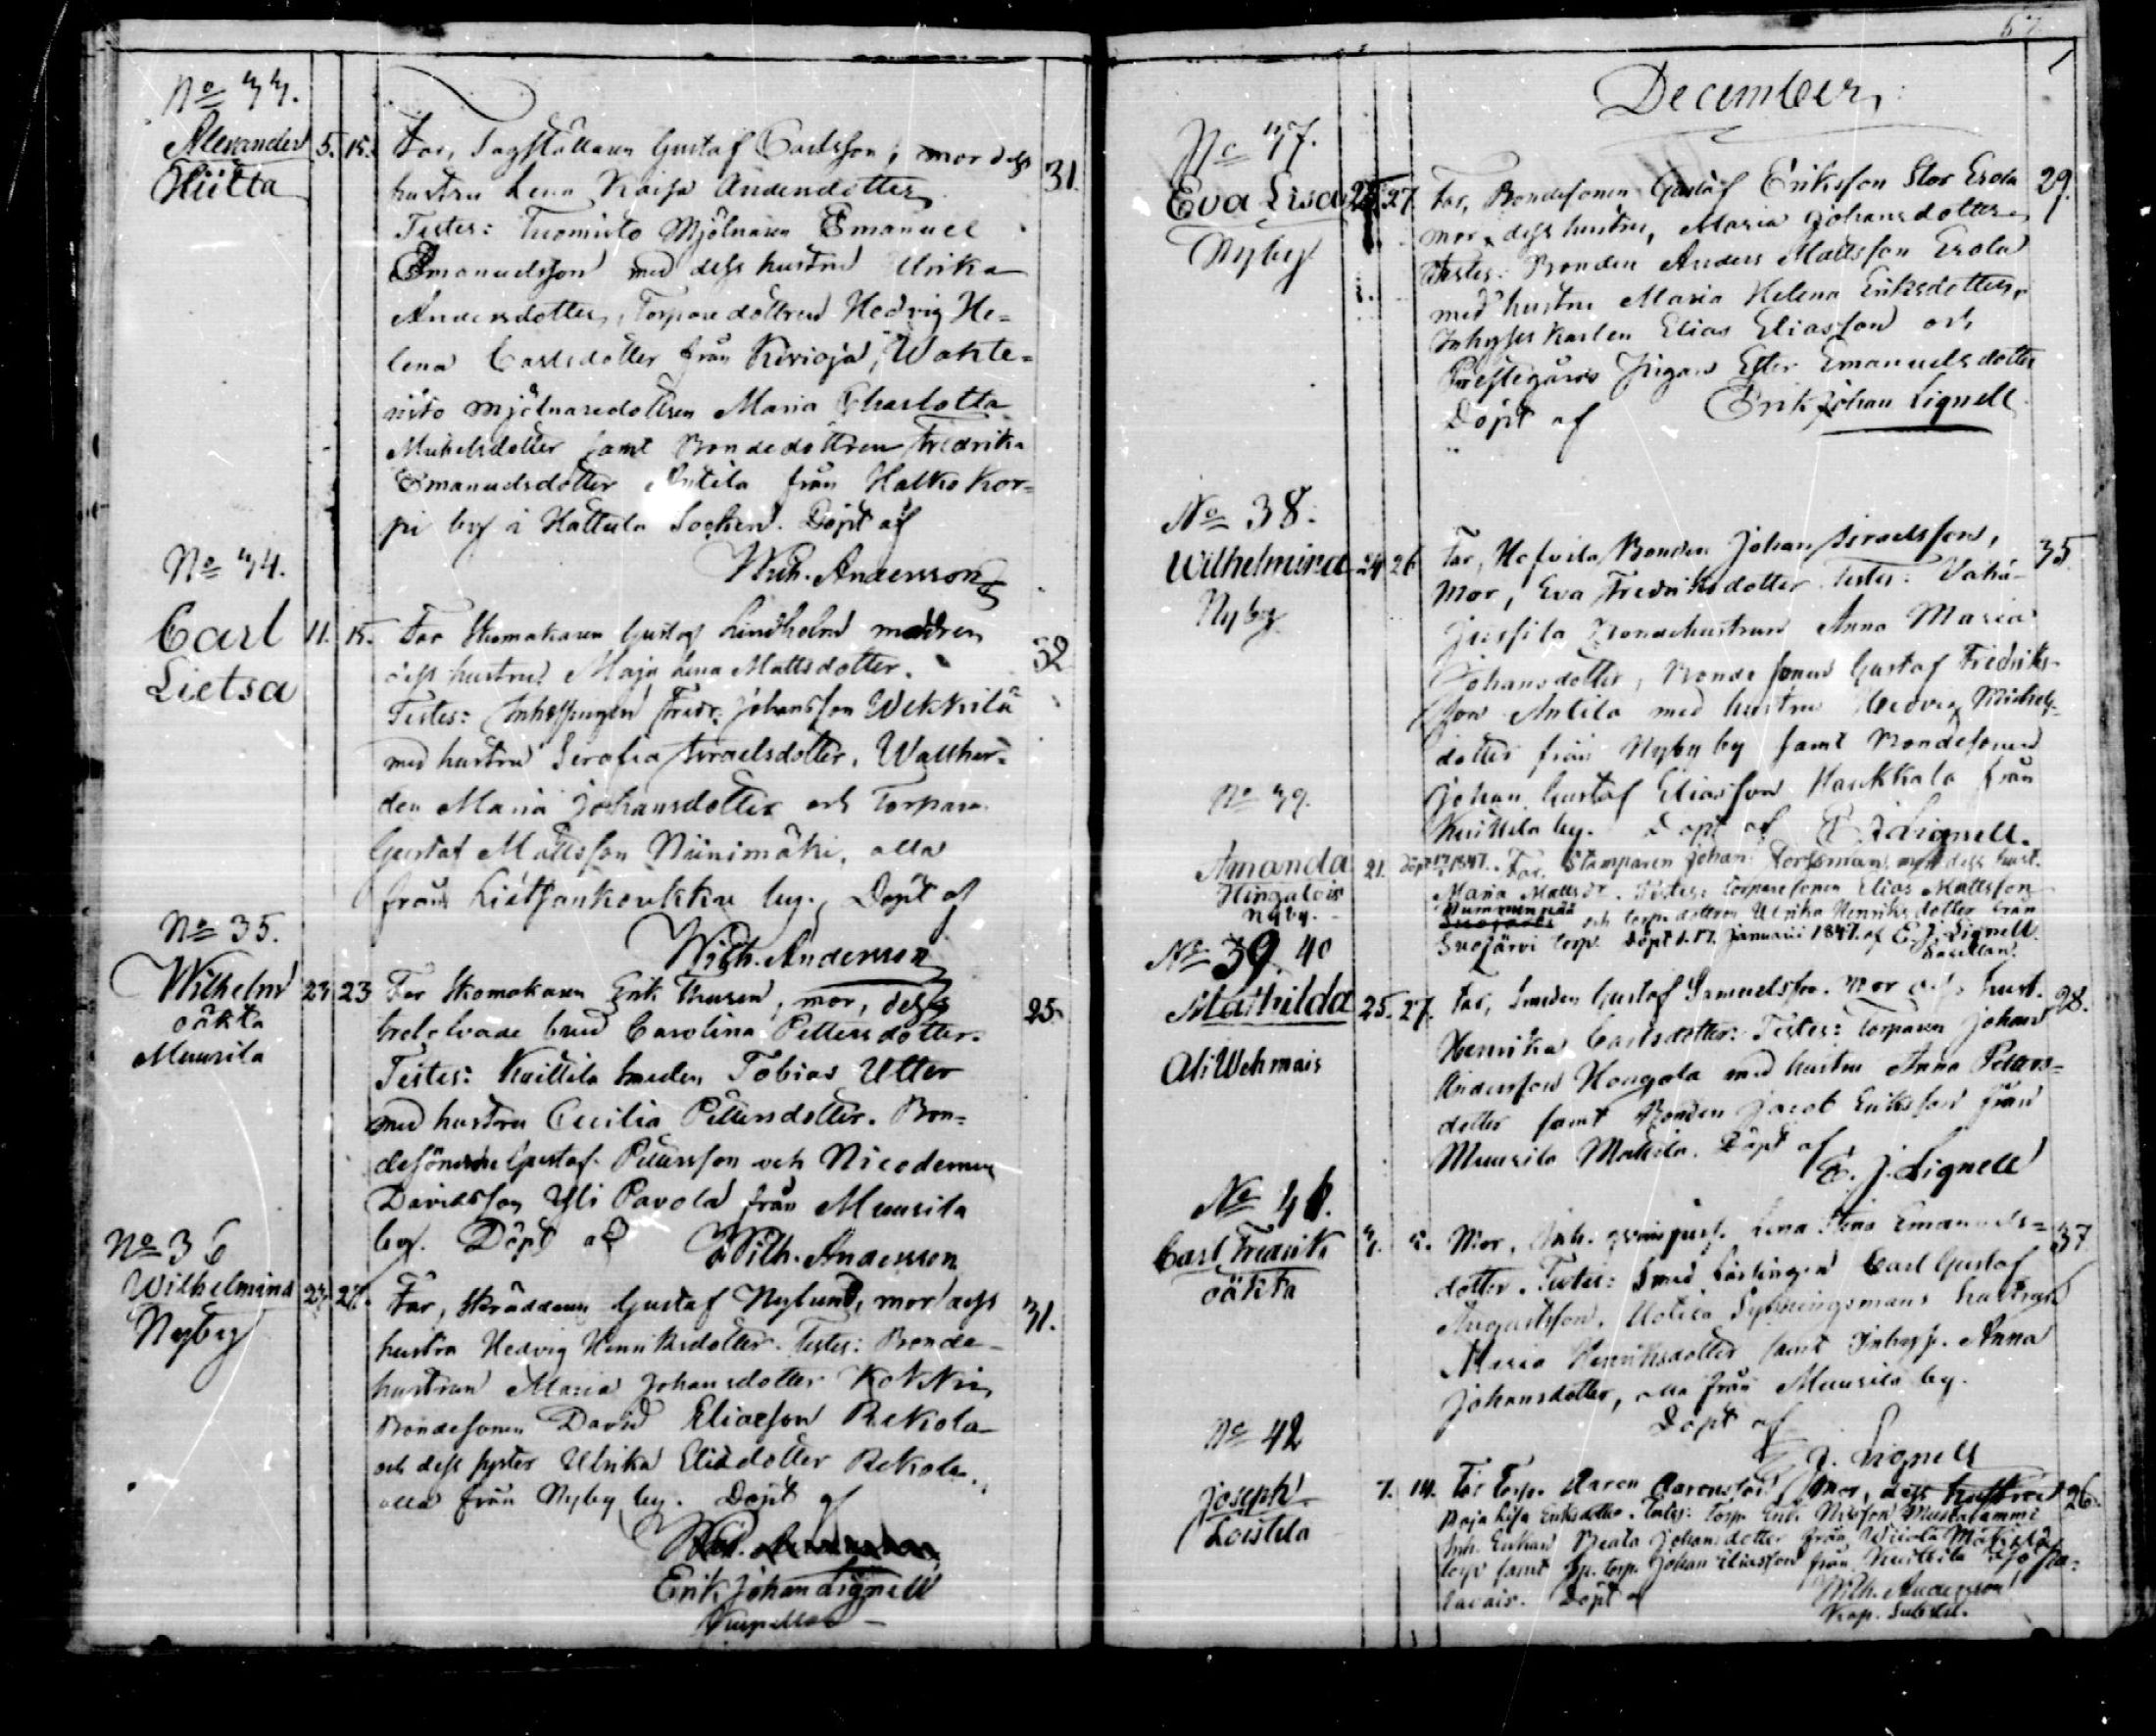 No 33.
Alexander 5. 15. Far, Gustaf Carlsson, mor dess 31.
Hütta hustru Lena Kaisa Andersdotter
Testes: Tuomisto Mjölnaren Emanuel
Emanuelsson med dess hustru Ulrika
Andersdotter, Torparedottren Hedvig He=
lena Carlsdotter från Kivioja, Wahte=
risto mjölnaredottren Maria Charlotta
Michelsdotter samt Bondedottren Fredrika
Emanuelsdotter Antila från Halko kor=
pi by i Hattula Socken. Döpt af
Wilh. Andersson
No 34.
Carl 11. 15. Far Skomakaren Gustaf Lindholm modren 32
Lietsa dess hustru Maja Lena Mattsdotter.
Testes: Fredr. Johansson Wekkilä
med hustru Serafia Israelsdotter,
den Maria Johansdotter och Torparen
Gustaf Mattsson Niinimäki, alla
från by. Döpt af
Wilh. Andersson
No 35.
Wilhelm 23 23 Far Skomakaren Erik mor, dess 25.
oäkta trolofvade brud Carolina Pettersdotter.
Muurila Testes: Kuittila Smeden Tobias Utter
med hustru Cecilia Pettersdotter. Bon=
desönerne Gustaf Pettersson och Nicodemus
Davidsson Yli Pavola från Muurila
by. Döpt af Wilh. Andersson
No 36
Wilhelmina 23. 27. Far, Skräddaren Gustaf Nylund, mor dess 31.
Nyby hustru Hedvig Henriksdotter. Testes: Bonde-
hustrun Maria Johansdotter Kokki,
Bondesonen David Eliasson Rekola
och dess syster Ulrika Eliædotter Rekola,
alla från Nyby by. Döpt af
Erik Johan Lignell
57
December
No 37.
Eva Lisa 25 27. Far, Bondesonen Gustaf Eriksson Stor Erola 29.
Nyby mor dess hustru, Maria Johansdotter
Testes: Bonden Anders Mattsson Erola
med hustru Maria Helena Eriksdotter,
Inhyses karlen Elias Eliasson och
Prestegårds Pigan Ester Emanuelsdotter
Döpt af Erik Johan Lignell
No 38.
Wilhelmina 24 26 Far, Bonden Johan Israelsson, 35
Nyby Mor, Eva Fredriksdotter Testes: Vähä-
Jussila Bondehustrun Anna Maria
Johansdotter, Bonde sonen Gustaf Fredriks-
son Antila med hustru Hedvig Michels-
dotter från Nyby by samt Bondesonen
Johan Gustaf Eliasson Haukkala från
Kuittila by. Döpt af E J Lignell.
No 39.
Amanda 21. 1847. Far. Stamparen Johan Forssman, mor dess hust.
Hingalois Maria Mattsdr. Testes: Torparesonen Elias Mattsson
Nyby. Nummenpää och torp. dottren Ulrika Henriksdotter från
Suojärvi torp. Döpt d. 17. Januarii 1847. af E. J. Lignell
No 39. 40
Mathilda 25. 27. Far, Smeden Gustaf Samuelsson. Mor dess hust. 28.
Ali Wehmais Henrika Carlsdotter: Testes: Torparen Johan
Andersson Hongola med hustru Anna Petters=
dotter samt Bonden Jacob Eriksson från
Muurila Mattila. Döpt af
E. J. Lignell
No 41.
Carl Fredrik Mor, Inh. Lena Stina Emanuels= 37
oäkta dotter. Testes: Smed Lärlingen Carl Gustaf
Augustsson, Uotila hustru
Maria Henriksdotter samt Inhys p. Anna
Johansdotter, alla från Muurila by.
Döpt af
J. Lignell
No 42
Joseph 7. 14. Far Torp. Aaron Aaronsson Mor, dess hustru 26.
Loistila Maja Lisa Eriksdotter. Testes: Torp. Erik Nilsson Mustalammi
Inh. Enkan Beata Johansdotter från Wiiala Mäkilä
torp samt torp. Johan Eliasson från Kuittila
Döpt af Wilh. Andersson
Kap. Subst.